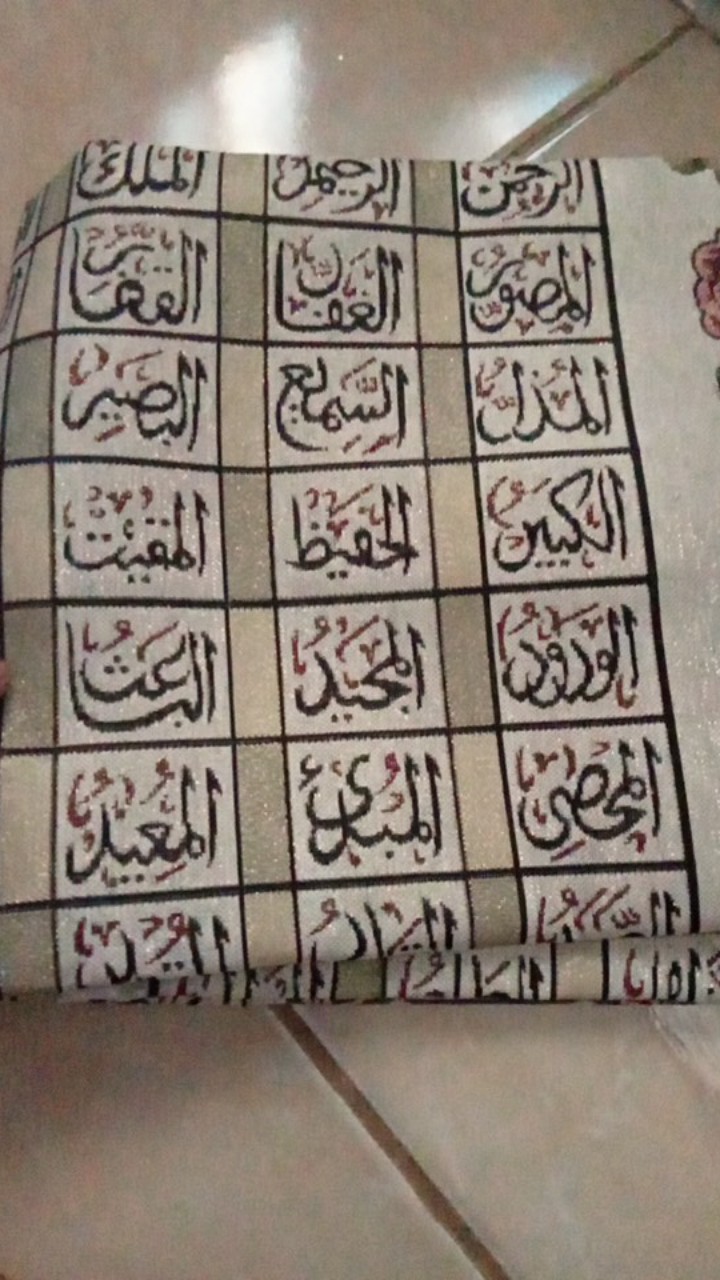 الرحمن الرحيم الملك
المصور الغفار القهار
المذل السميع البصير
الكبير الحفيظ المقيت
الودود المجيد الباعث
المحصي المبدئ المعيد